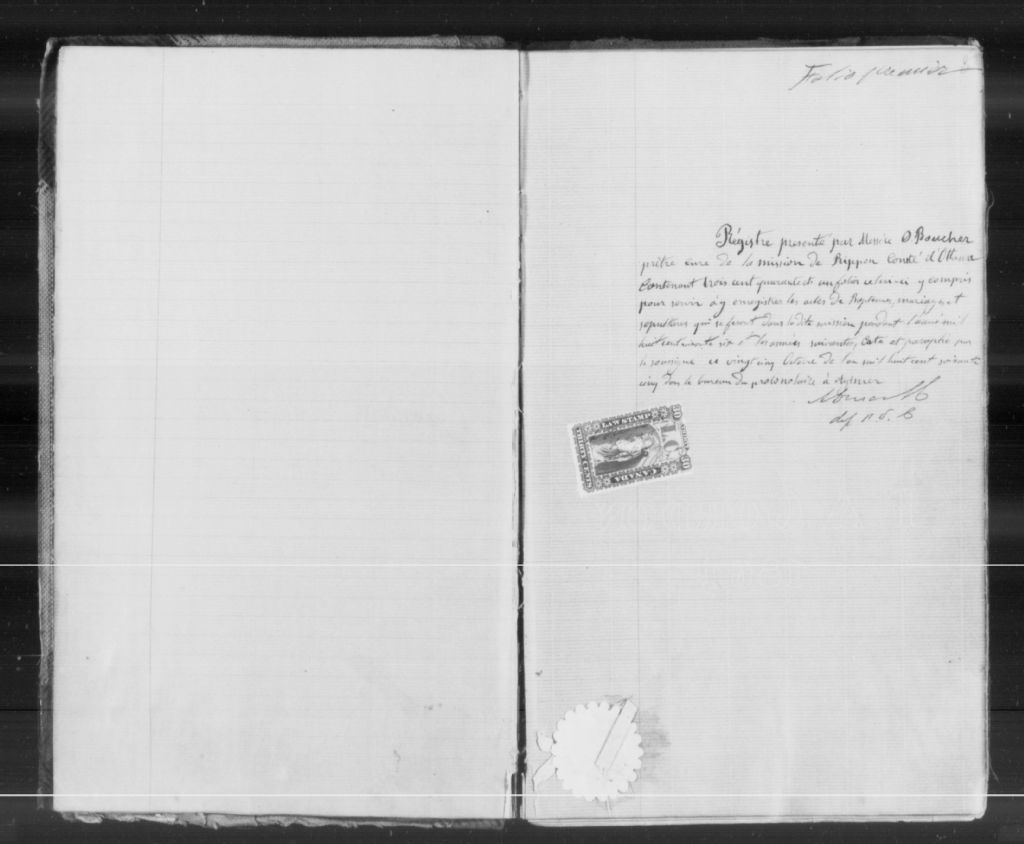 Folio premier
Régistre presenté par Messire O. Boucher
prêtre curé de la mission de Rippon Comté d'Ottawa
Contenant trois cent quarante et un folios celui-ci y compris
pour servir à y enregistrer les actes de Baptemes, mariages et
sepultures qui se feront dans la dite mission pendant l'année mil
huit cent soixante six et les années suivantes, Coté et paraphé par
le soussigné ce vingt cinq Octobre de l'an mil huit cent soixante
cinq dans le bureau du protonotaire à Aylmer
LAW STAMP
CANADA
L C
30